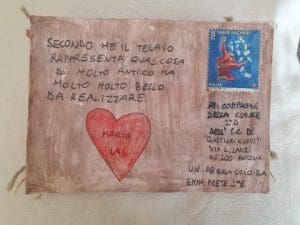 SECONDO ME IL TELAIO
RAPPRESENTA QUALCOSA
DI MOLTO ANTICO MA
MOLTO MOLTO BELLO
DA REALIZZARE.
MARIA
LAI
ITALIA
AI COMPAGNI
DELLA CLASSE
2ªD
DELL' I.C. DI
"QUARTIERI NUOVI"
VIA L. LANZI
60100 ANCONA
UN ABBRACCIO DA
EMMA PRETE 1ªE